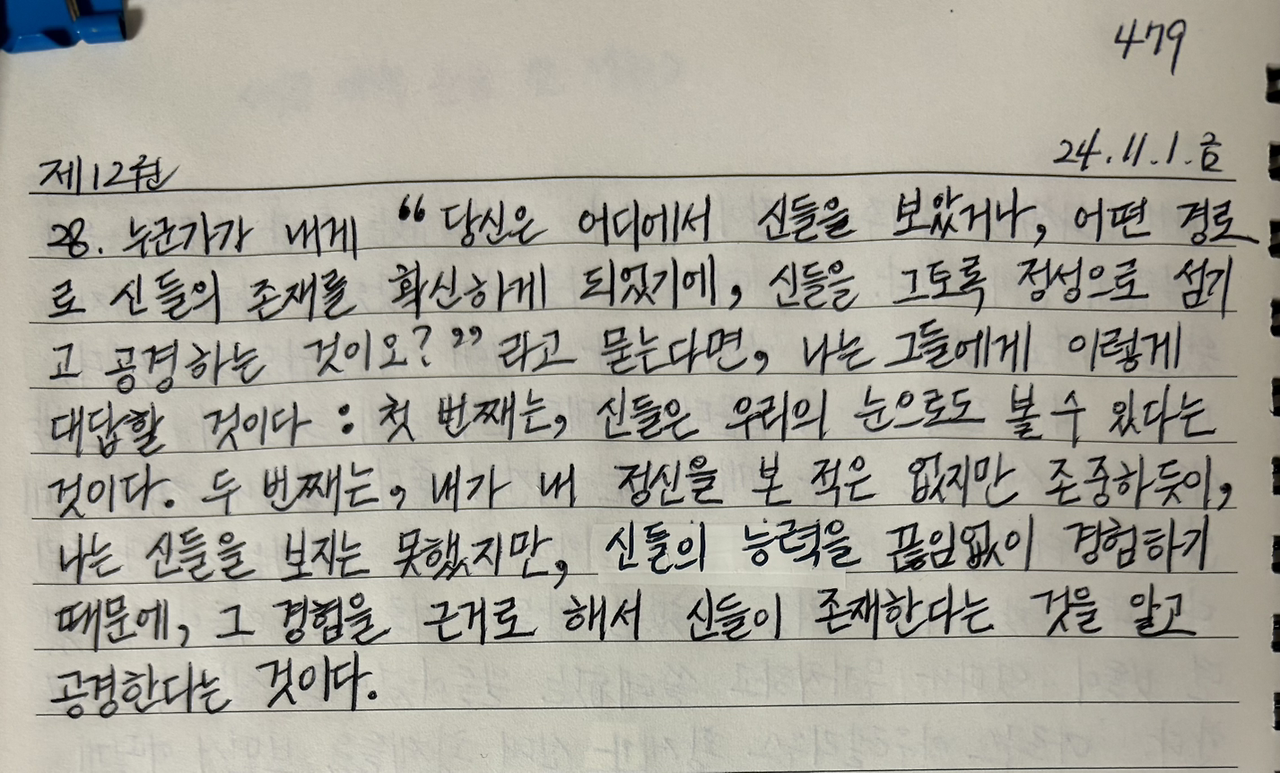 479
제12권 24.11.1.금
28. 누군가가 내게 “당신은 어디에서 신들을 보았거나, 어떤 경로
로 신들의 존재를 확신하게 되었기에, 신들을 그토록 정성으로 섬기
고 공경하는 것이오?”라고 묻는다면, 나는 그들에게 이렇게
대답할 것이다 : 첫 번째는, 신들은 우리의 눈으로도 볼 수 있다는
것이다. 두 번째는, 내가 내 정신을 본 적은 없지만 존중하듯이,
나는 신들을 보지는 못했지만, 신들의 능력을 끊임없이 경험하기
때문에, 그 경험을 근거로 해서 신들이 존재한다는 것을 알고
공경한다는 것이다.